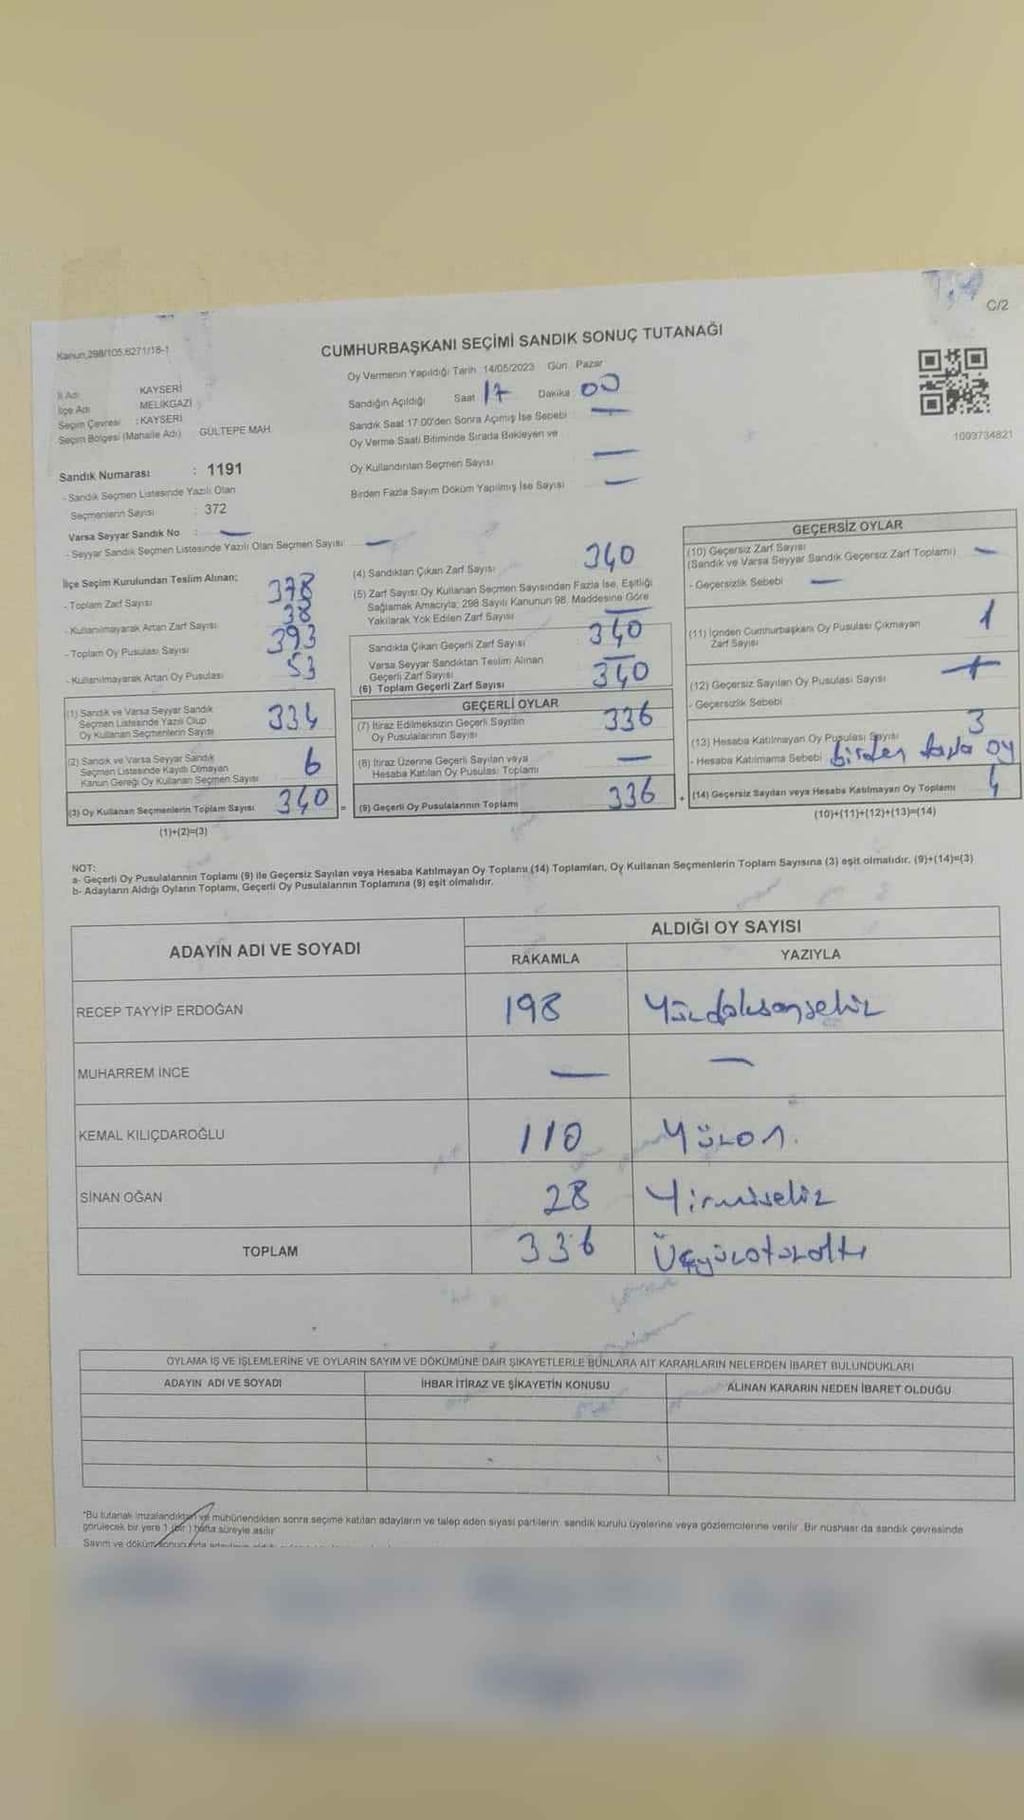 C/2
Kanun.298/105,6271/18-1
CUMHURBAŞKANI SEÇİMİ SANDIK SONUÇ TUTANAĞI
Oy Vermenin Yapıldığı Tarih 14/05/2023 Gün Pazar
İl Adı KAYSERİ
İlçe Adı MELİKGAZİ
Seçim Çevresi : KAYSERİ
Seçim Bölgesi (Mahalle Adı) GÜLTEPE MAH.
Sandığın Açıldığı Saat 17 Dakika 00
Sandık Saat 17.00'den Sonra Açımış İse Sebebi —
Oy Verme Saati Bitiminde Sırada Bekleyen ve
Oy Kullandırılan Seçmen Sayısı —
Birden Fazla Sayım Döküm Yapılmış İse Sayısı —
1003734821
Sandık Numarası : 1191
- Sandık Seçmen Listesinde Yazılı Olan
Seçmenlerin Sayısı : 372
Varsa Seyyar Sandık No : —
- Seyyar Sandık Seçmen Listesinde Yazılı Olan Seçmen Sayısı —
İlçe Seçim Kurulundan Teslim Alınan;
- Toplam Zarf Sayısı 378
- Kullanılmayarak Artan Zarf Sayısı 38
- Toplam Oy Pusulası Sayısı 393
- Kullanılmayarak Artan Oy Pusulası 53
(1) Sandık ve Varsa Seyyar Sandık
Seçmen Listesinde Yazılı Olup
Oy Kullanan Seçmenlerin Sayısı 334
(2) Sandık ve Varsa Seyyar Sandık
Seçmen Listesinde Kayıtlı Olmayan
Kanun Gereği Oy Kullanan Seçmen Sayısı 6
(3) Oy Kullanan Seçmenlerin Toplam Sayısı 340 =
(1)+(2)=(3)
(4) Sandıktan Çıkan Zarf Sayısı 340
(5) Zarf Sayısı Oy Kullanan Seçmen Sayısından Fazla İse, Eşitliği
Sağlamak Amacıyla; 298 Sayılı Kanunun 98. Maddesine Göre
Yakılarak Yok Edilen Zarf Sayısı —
Sandıkta Çıkan Geçerli Zarf Sayısı 340
Varsa Seyyar Sandıktan Teslim Alınan
Geçerli Zarf Sayısı —
(6) Toplam Geçerli Zarf Sayısı 340
GEÇERLİ OYLAR
(7) İtiraz Edilmeksizin Geçerli Sayılan
Oy Pusulalarının Sayısı 336
(8) İtiraz Üzerine Geçerli Sayılan veya
Hesaba Katılan Oy Pusulası Toplamı —
(9) Geçerli Oy Pusulalarının Toplamı 336 +
GEÇERSİZ OYLAR
(10) Geçersiz Zarf Sayısı
(Sandık ve Varsa Seyyar Sandık Geçersiz Zarf Toplamı) —
- Geçersizlik Sebebi —
(11) İçinden Cumhurbaşkanı Oy Pusulası Çıkmayan
Zarf Sayısı 1
(12) Geçersiz Sayılan Oy Pusulası Sayısı
- Geçersizlik Sebebi
(13) Hesaba Katılmayan Oy Pusulası Sayısı 3
- Hesaba Katılmama Sebebi birden fazla oy
(14) Geçersiz Sayılan veya Hesaba Katılmayan Oy Toplamı 4
(10)+(11)+(12)+(13)=(14)
NOT:
a- Geçerli Oy Pusulalarının Toplamı (9) ile Geçersiz Sayılan veya Hesaba Katılmayan Oy Toplamı (14) Toplamları, Oy Kullanan Seçmenlerin Toplam Sayısına (3) eşit olmalıdır. (9)+(14)=(3)
b- Adayların Aldığı Oyların Toplamı, Geçerli Oy Pusulalarının Toplamına (9) eşit olmalıdır.
ADAYIN ADI VE SOYADI ALDIĞI OY SAYISI
RAKAMLA YAZIYLA
RECEP TAYYİP ERDOĞAN 198 Yüzdoksansekiz
MUHARREM İNCE — —
KEMAL KILIÇDAROĞLU 110 Yüzon.
SİNAN OĞAN 28 Yirmisekiz
TOPLAM 336 Üçyüzotuzaltı
OYLAMA İŞ VE İŞLEMLERİNE VE OYLARIN SAYIM VE DÖKÜMÜNE DAİR ŞİKAYETLERLE BUNLARA AİT KARARLARIN NELERDEN İBARET BULUNDUKLARI
ADAYIN ADI VE SOYADI İHBAR İTİRAZ VE ŞİKAYETİN KONUSU ALINAN KARARIN NEDEN İBARET OLDUĞU
*Bu tutanak imzalandıktan ve mühürlendikten sonra seçime katılan adayların ve talep eden siyasi partilerin, sandık kurulu üyelerine veya gözlemcilerine verilir. Bir nüshası da sandık çevresinde
görülecek bir yere 1 (bir) hafta süreyle asılır
Sayım ve döküm sonucunda